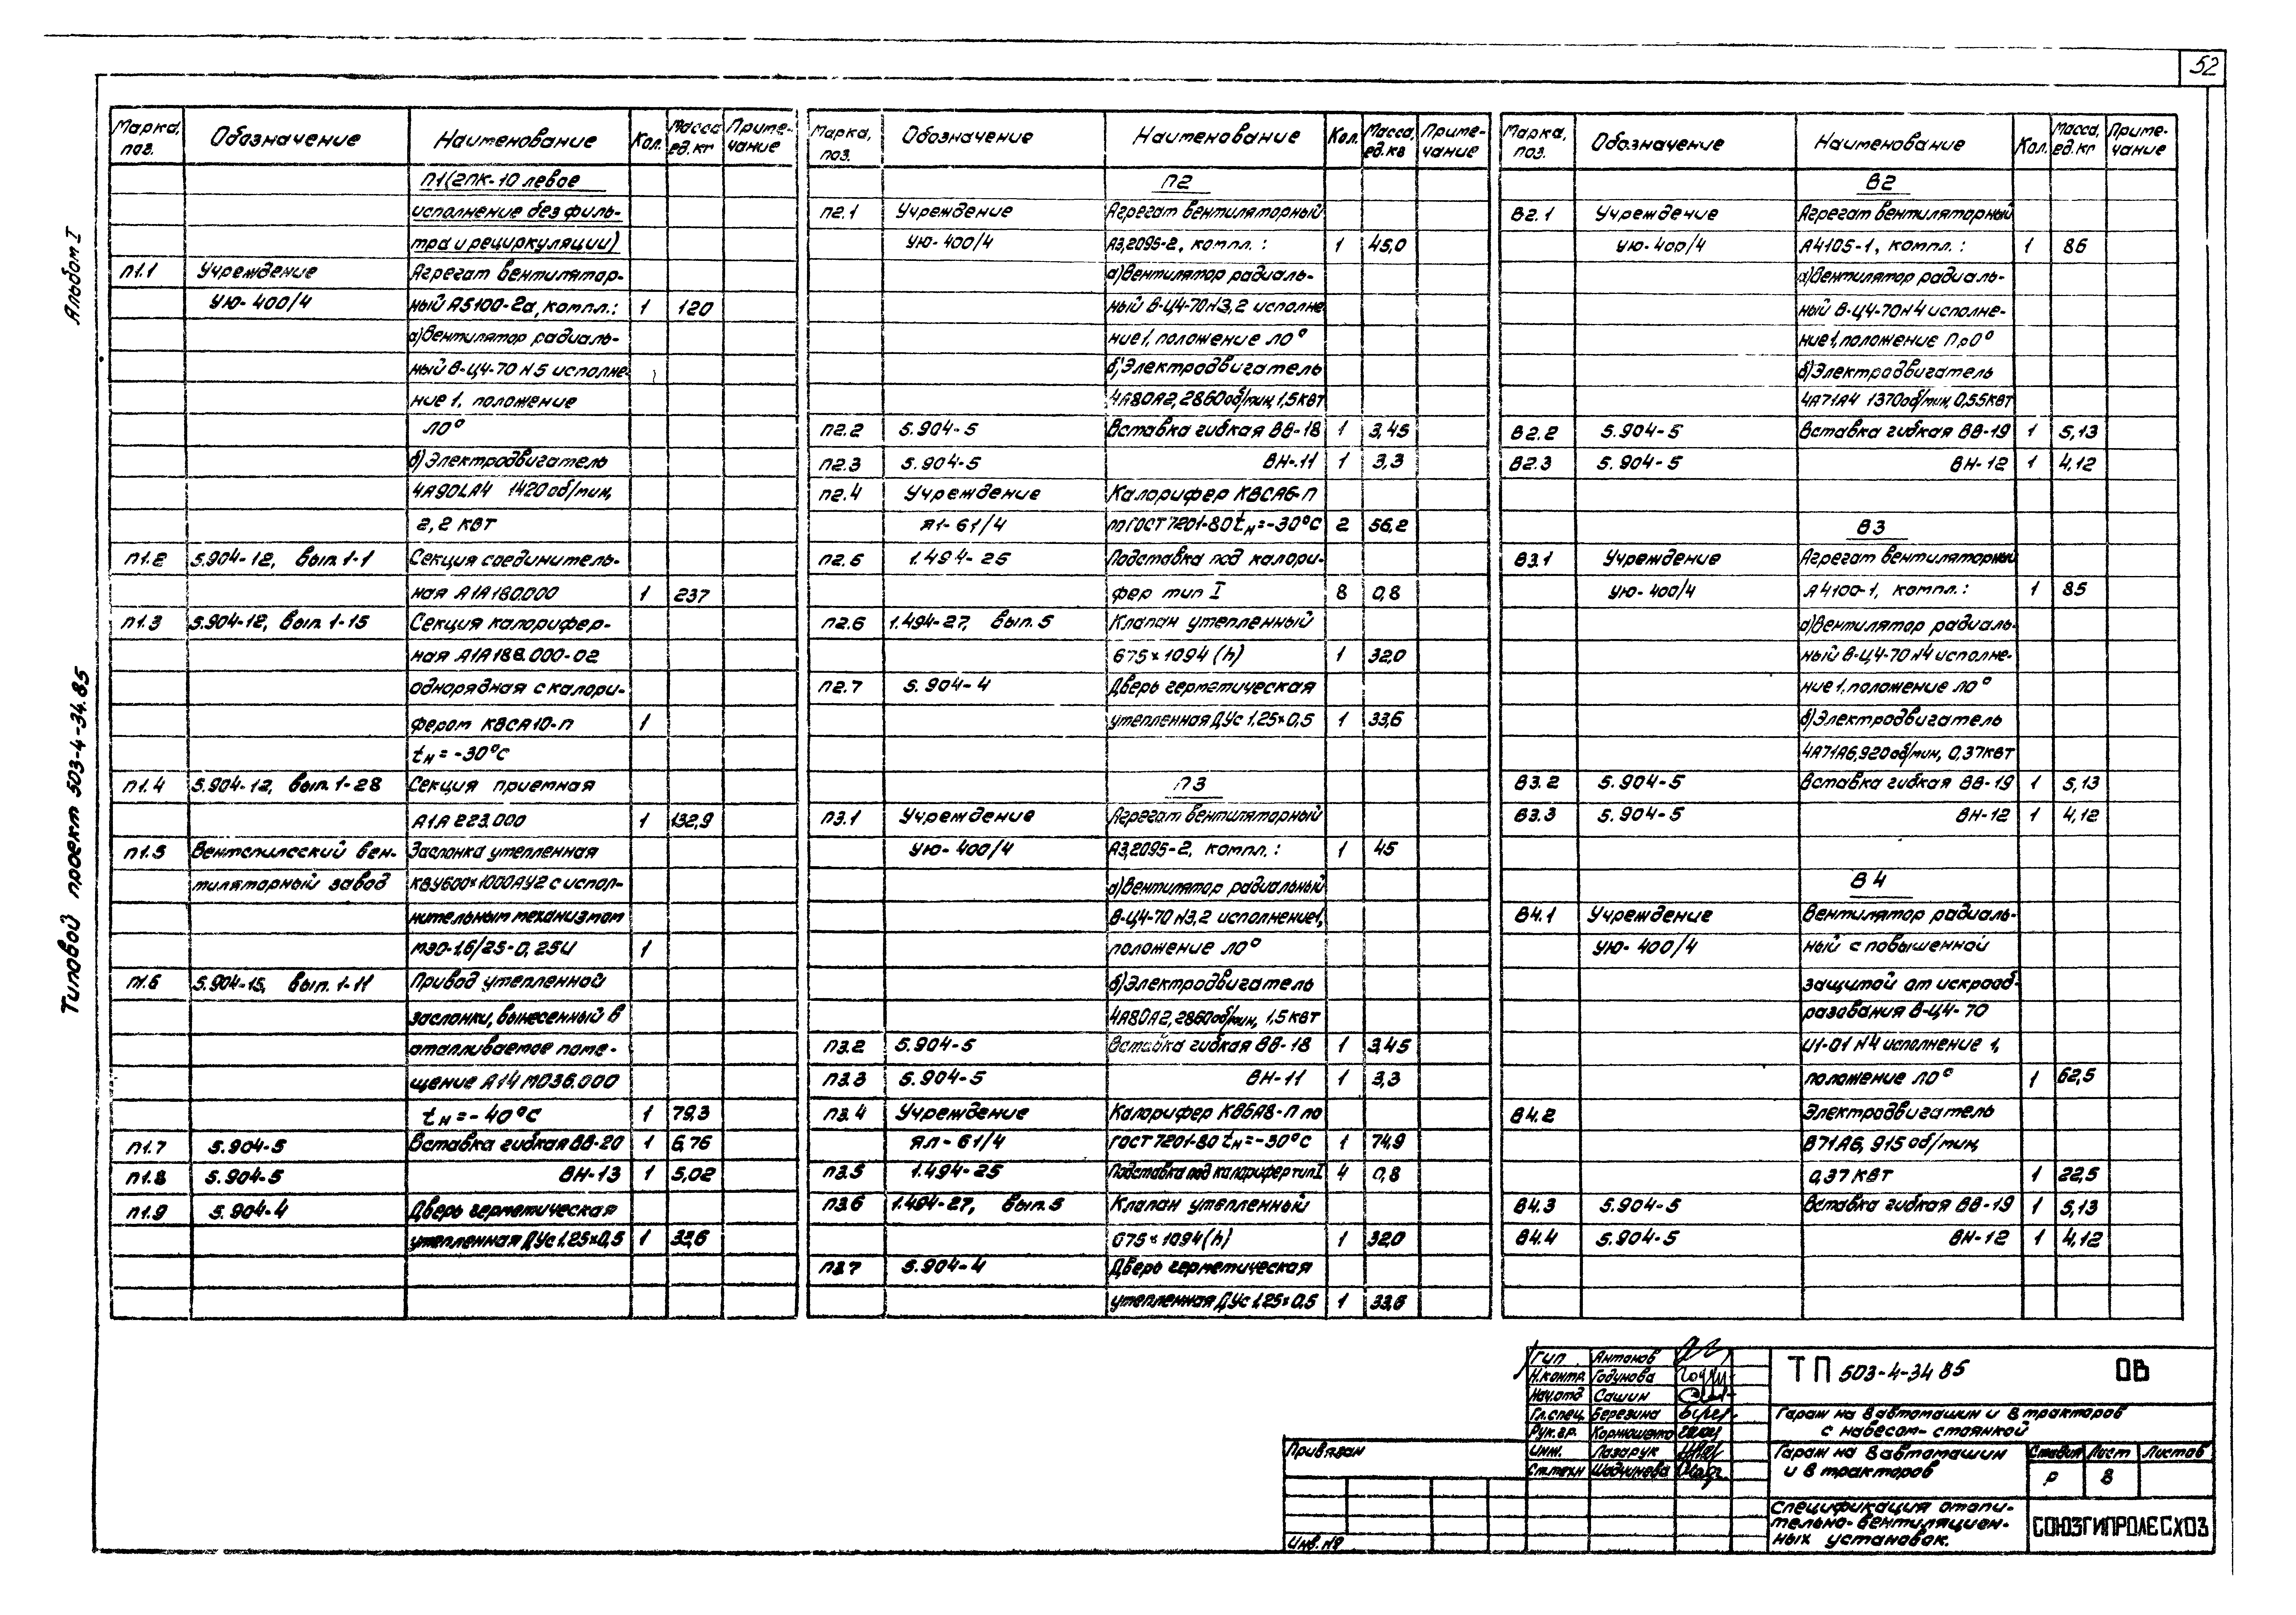 52
Альбом I
Типовой проект 503-4-34.85
Марка, поз. Обозначение Наименование Кол. Масса ед. кг Приме-чание
П1(2ПК-10 левое
исполнение без филь-
тра и рециркуляции)
П1.1 Учреждение Агрегат вентилятор-
УЮ-400/4 ный А5100-2а, компл.: 1 120
а) Вентилятор радиаль-
ный В-Ц4-70 N5 исполне-
ние 1, положение
Л0°
б) Электродвигатель
4А90LA4 1420 об/мин,
2,2 кВт
П1.2 5.904-12, вып. 1-1 Секция соединитель-
ная А1А180.000 1 237
П1.3 5.904-12, вып. 1-15 Секция калорифер-
ная А1А188.000-02
однорядная с калори-
фером КВСА10-П 1
tн = -30°С
П1.4 5.904-12, вып. 1-28 Секция приемная
А1А 223.000 1 132,9
П1.5 Вентспилсский вен- Заслонка утепленная
тиляторный завод КВУ600×1000АУ2 с испол-
нительным механизмом
МЭО-1,6/25-0,25И 1
П1.6 5.904-15, вып. 1-11 Привод утепленной
заслонки, вынесенный в
отапливаемое поме-
щение А14М036.000
tн = -40°С 1 79,3
П1.7 5.904-5 Вставка гибкая ВВ-20 1 6,76
П1.8 5.904-5 ВН-13 1 5,02
П1.9 5.904-4 Дверь герметическая
утепленная ДУс 1,25×0,5 1 33,6
Марка, поз. Обозначение Наименование Кол. Масса, ед. кв Приме-чание
П2
П2.1 Учреждение Агрегат вентиляторный
УЮ-400/4 А3,2095-2, компл.: 1 45,0
а) Вентилятор радиаль-
ный В-Ц4-70 N3,2 исполне-
ние 1, положение Л0°
б) Электродвигатель
4А80А2, 2860 об/мин, 1,5 кВт
П2.2 5.904-5 Вставка гибкая ВВ-18 1 3,45
П2.3 5.904-5 ВН-11 1 3,3
П2.4 Учреждение Калорифер КВСА6-П
Я1-61/4 по ГОСТ 7201-80 tн = -30°С 2 56,2
П2.5 1.494-25 Подставка под калори-
фер тип I 8 0,8
П2.6 1.494-27, вып. 5 Клапан утепленный
675×1094 (h) 1 32,0
П2.7 5.904-4 Дверь герметическая
утепленная ДУс 1,25×0,5 1 33,6
П3
П3.1 Учреждение Агрегат вентиляторный
УЮ-400/4 А3,2095-2, компл.: 1 45
а) Вентилятор радиальный
В-Ц4-70 N3,2 исполнение 1,
положение Л0°
б) Электродвигатель
4А80А2, 2860 об/мин, 1,5 кВт
П3.2 5.904-5 Вставка гибкая ВВ-18 1 3,45
П3.3 5.904-5 ВН-11 1 3,3
П3.4 Учреждение Калорифер КВБА8-П по
ЯЛ-61/4 ГОСТ 7201-80 tн = -30°С 1 74,9
П3.5 1.494-25 Подставка под калорифер тип I 4 0,8
П3.6 1.494-27, вып. 5 Клапан утепленный
675×1094 (h) 1 32,0
П3.7 5.904-4 Дверь герметическая
утепленная ДУс 1,25×0,5 1 33,6
Марка, поз. Обозначение Наименование Кол. Масса, ед. кг Приме-чание
В2
В2.1 Учреждение Агрегат вентиляторный
УЮ-400/4 А4105-1, компл.: 1 86
а) Вентилятор радиаль-
ный В-Ц4-70 N4 исполне-
ние 1, положение Пр0°
б) Электродвигатель
4А71А4 1370 об/мин, 0,55 кВт
В2.2 5.904-5 Вставка гибкая ВВ-19 1 5,13
В2.3 5.904-5 ВН-12 1 4,12
В3
В3.1 Учреждение Агрегат вентиляторный
УЮ-400/4 А4100-1, компл.: 1 85
а) Вентилятор радиаль-
ный В-Ц4-70 N4 исполне-
ние 1, положение Л0°
б) Электродвигатель
4А71А6, 920 об/мин, 0,37 кВт
В3.2 5.904-5 Вставка гибкая ВВ-19 1 5,13
В3.3 5.904-5 ВН-12 1 4,12
В4
В4.1 Учреждение Вентилятор радиаль-
УЮ-400/4 ный с повышенной
защитой от искрооб-
разования В-Ц4-70
И1-01 N4 исполнение 1,
положение Л0° 1 62,5
В4.2 Электродвигатель
В71А6, 915 об/мин,
0,37 кВт 1 22,5
В4.3 5.904-5 Вставка гибкая ВВ-19 1 5,13
В4.4 5.904-5 ВН-12 1 4,12
Гип Антонов
Н.контр. Годунова
Нач.отд Сашин
Гл.спец. Березина
Рук.гр. Кормошенко
Инж. Лазарук
Ст.техн Шадчинева
Привязан
Инв. №
ТП 503-4-34 85 ОВ
Гараж на 8 автомашин и 8 тракторов
с навесом-стоянкой
Гараж на 8 автомашин
и 8 тракторов
Стадия Лист Листов
Р 8
Спецификация отопи-
тельно-вентиляцион-
ных установок.
СОЮЗГИПРОЛЕСХОЗ